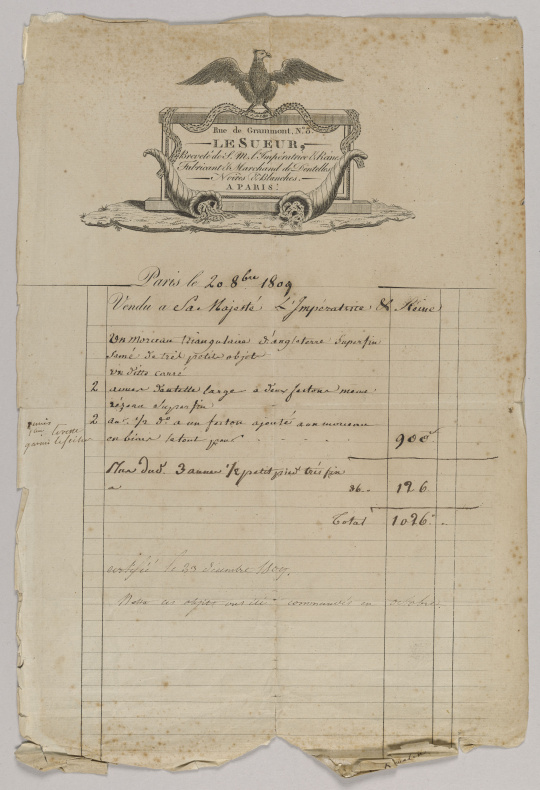 Rue de Grammont, N.º 8.
LE SUEUR,
Breveté de S. M. l'Impératrice & Reine
Fabricant & Marchand de Dentelles
Noires & Blanches.
A PARIS.
Paris le 20 8bre 1809
Vendu a Sa Majesté L'Impératrice & Reine
Un morceau triangulaire d'angleterre Superfin
Semé de très petits objet
un ditto carré
2 aunes dentelle large a deux festons mème
réseau Superfin
2 au. 1/2 d.º a un feston ajouté aux morceau
en biais le tout pour 900
Plus dud. 3 aunes 1/2 petit pied très fin
a 36.. 126
Total 1026
certifié le 23 decembre 1809.
Nota ces objets ont été commandés en octobre.